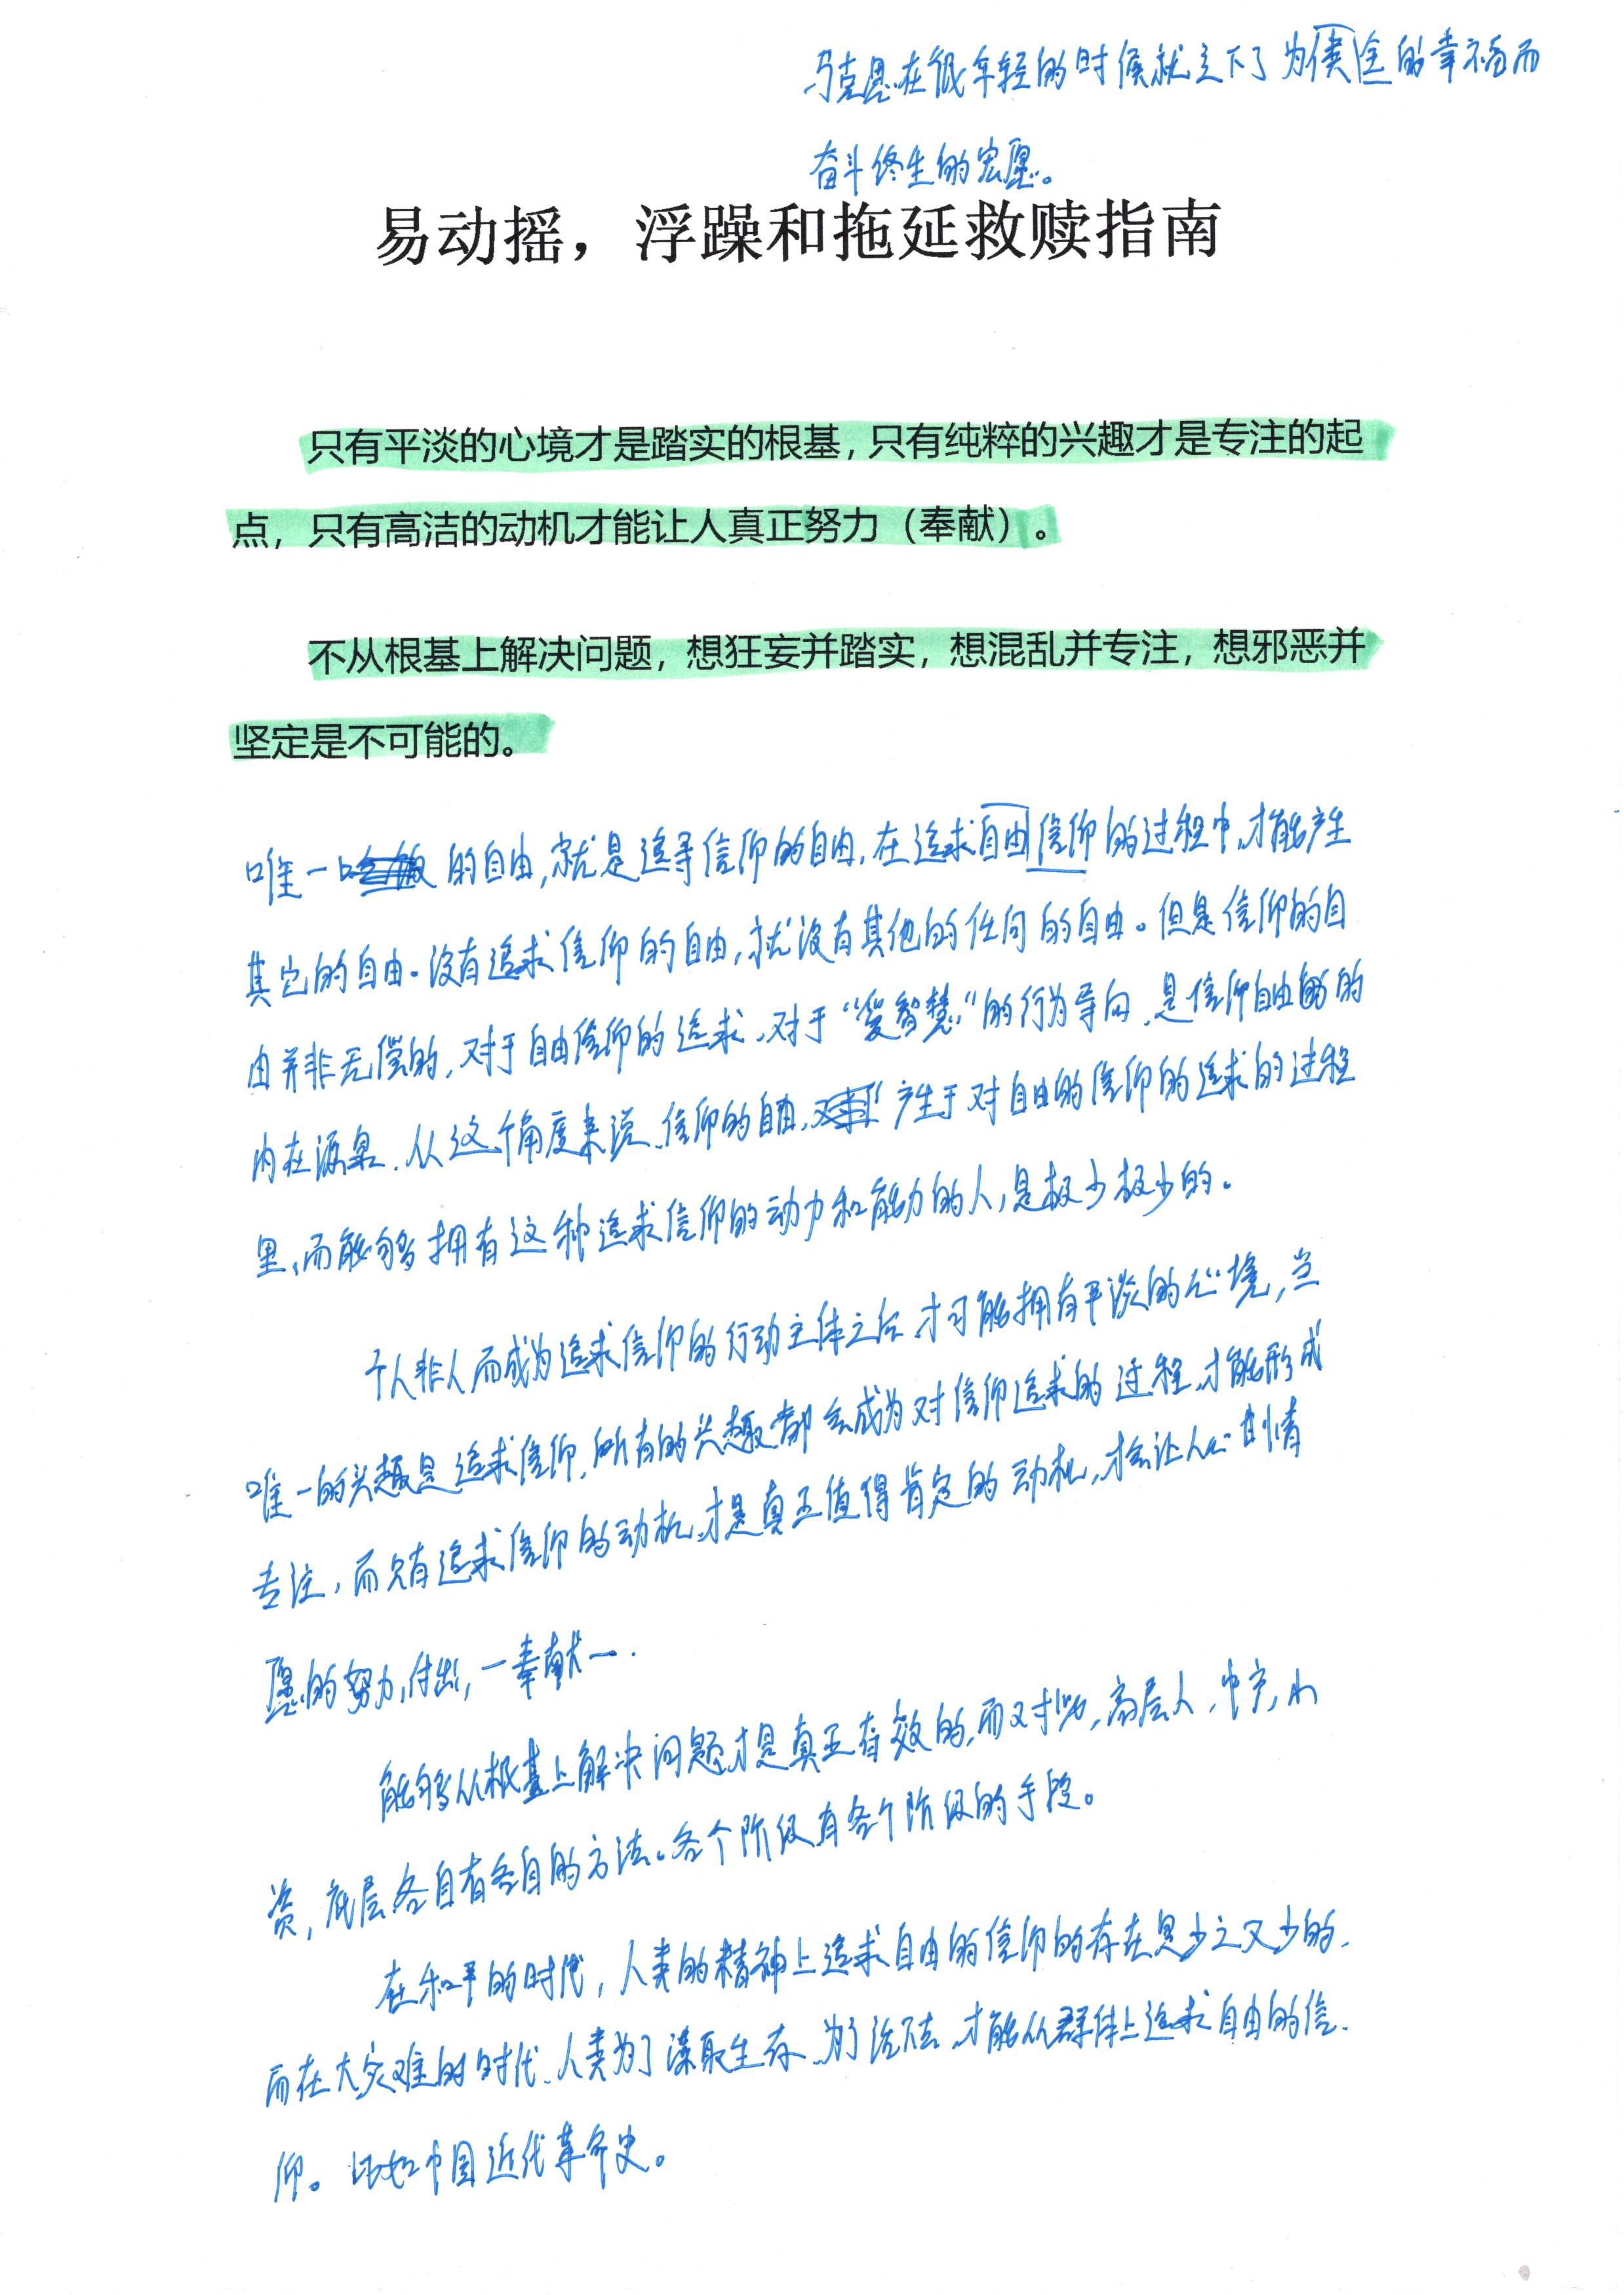 马克思在很年轻的时候就立下了为人类的幸福而
奋斗终生的宏愿。
易动摇，浮躁和拖延救赎指南
只有平淡的心境才是踏实的根基，只有纯粹的兴趣才是专注的起
点，只有高洁的动机才能让人真正努力（奉献）。
不从根基上解决问题，想狂妄并踏实，想混乱并专注，想邪恶并
坚定是不可能的。
唯一的自由，就是追寻信仰的自由，在追求自由信仰的过程中，才能产生
其它的自由。没有追求信仰的自由，就没有其他的任何的自由。但是信仰的自
由并非无偿的，对于自由信仰的追求，对于“爱智慧”的行为导向，是信仰自由的
内在源泉，从这个角度来说，信仰的自由，产生于对自由的信仰的追求的过程
里，而能够拥有这种追求信仰的动力和能力的人，是极少极少的。
个人非人而成为追求信仰的行动主体之后，才可能拥有平淡的心境，当
唯一的兴趣是追求信仰，所有的兴趣都会成为对信仰追求的过程，才能形成
专注，而只有追求信仰的动机，才是真正值得肯定的动机，才会让人心甘情
愿的努力，付出，一奉献一．
能够从根基上解决问题，才是真正有效的，而对，高层人，中产，小
资，底层各自有各自的方法。各个阶级有各个阶级的手段。
在和平的时代，人类的精神上追求自由的信仰的存在是少之又少的，
而在大灾难的时代，人类为了谋取生存，为了活下去，才能从群体上追求自由的信
仰。比如中国近代革命史。